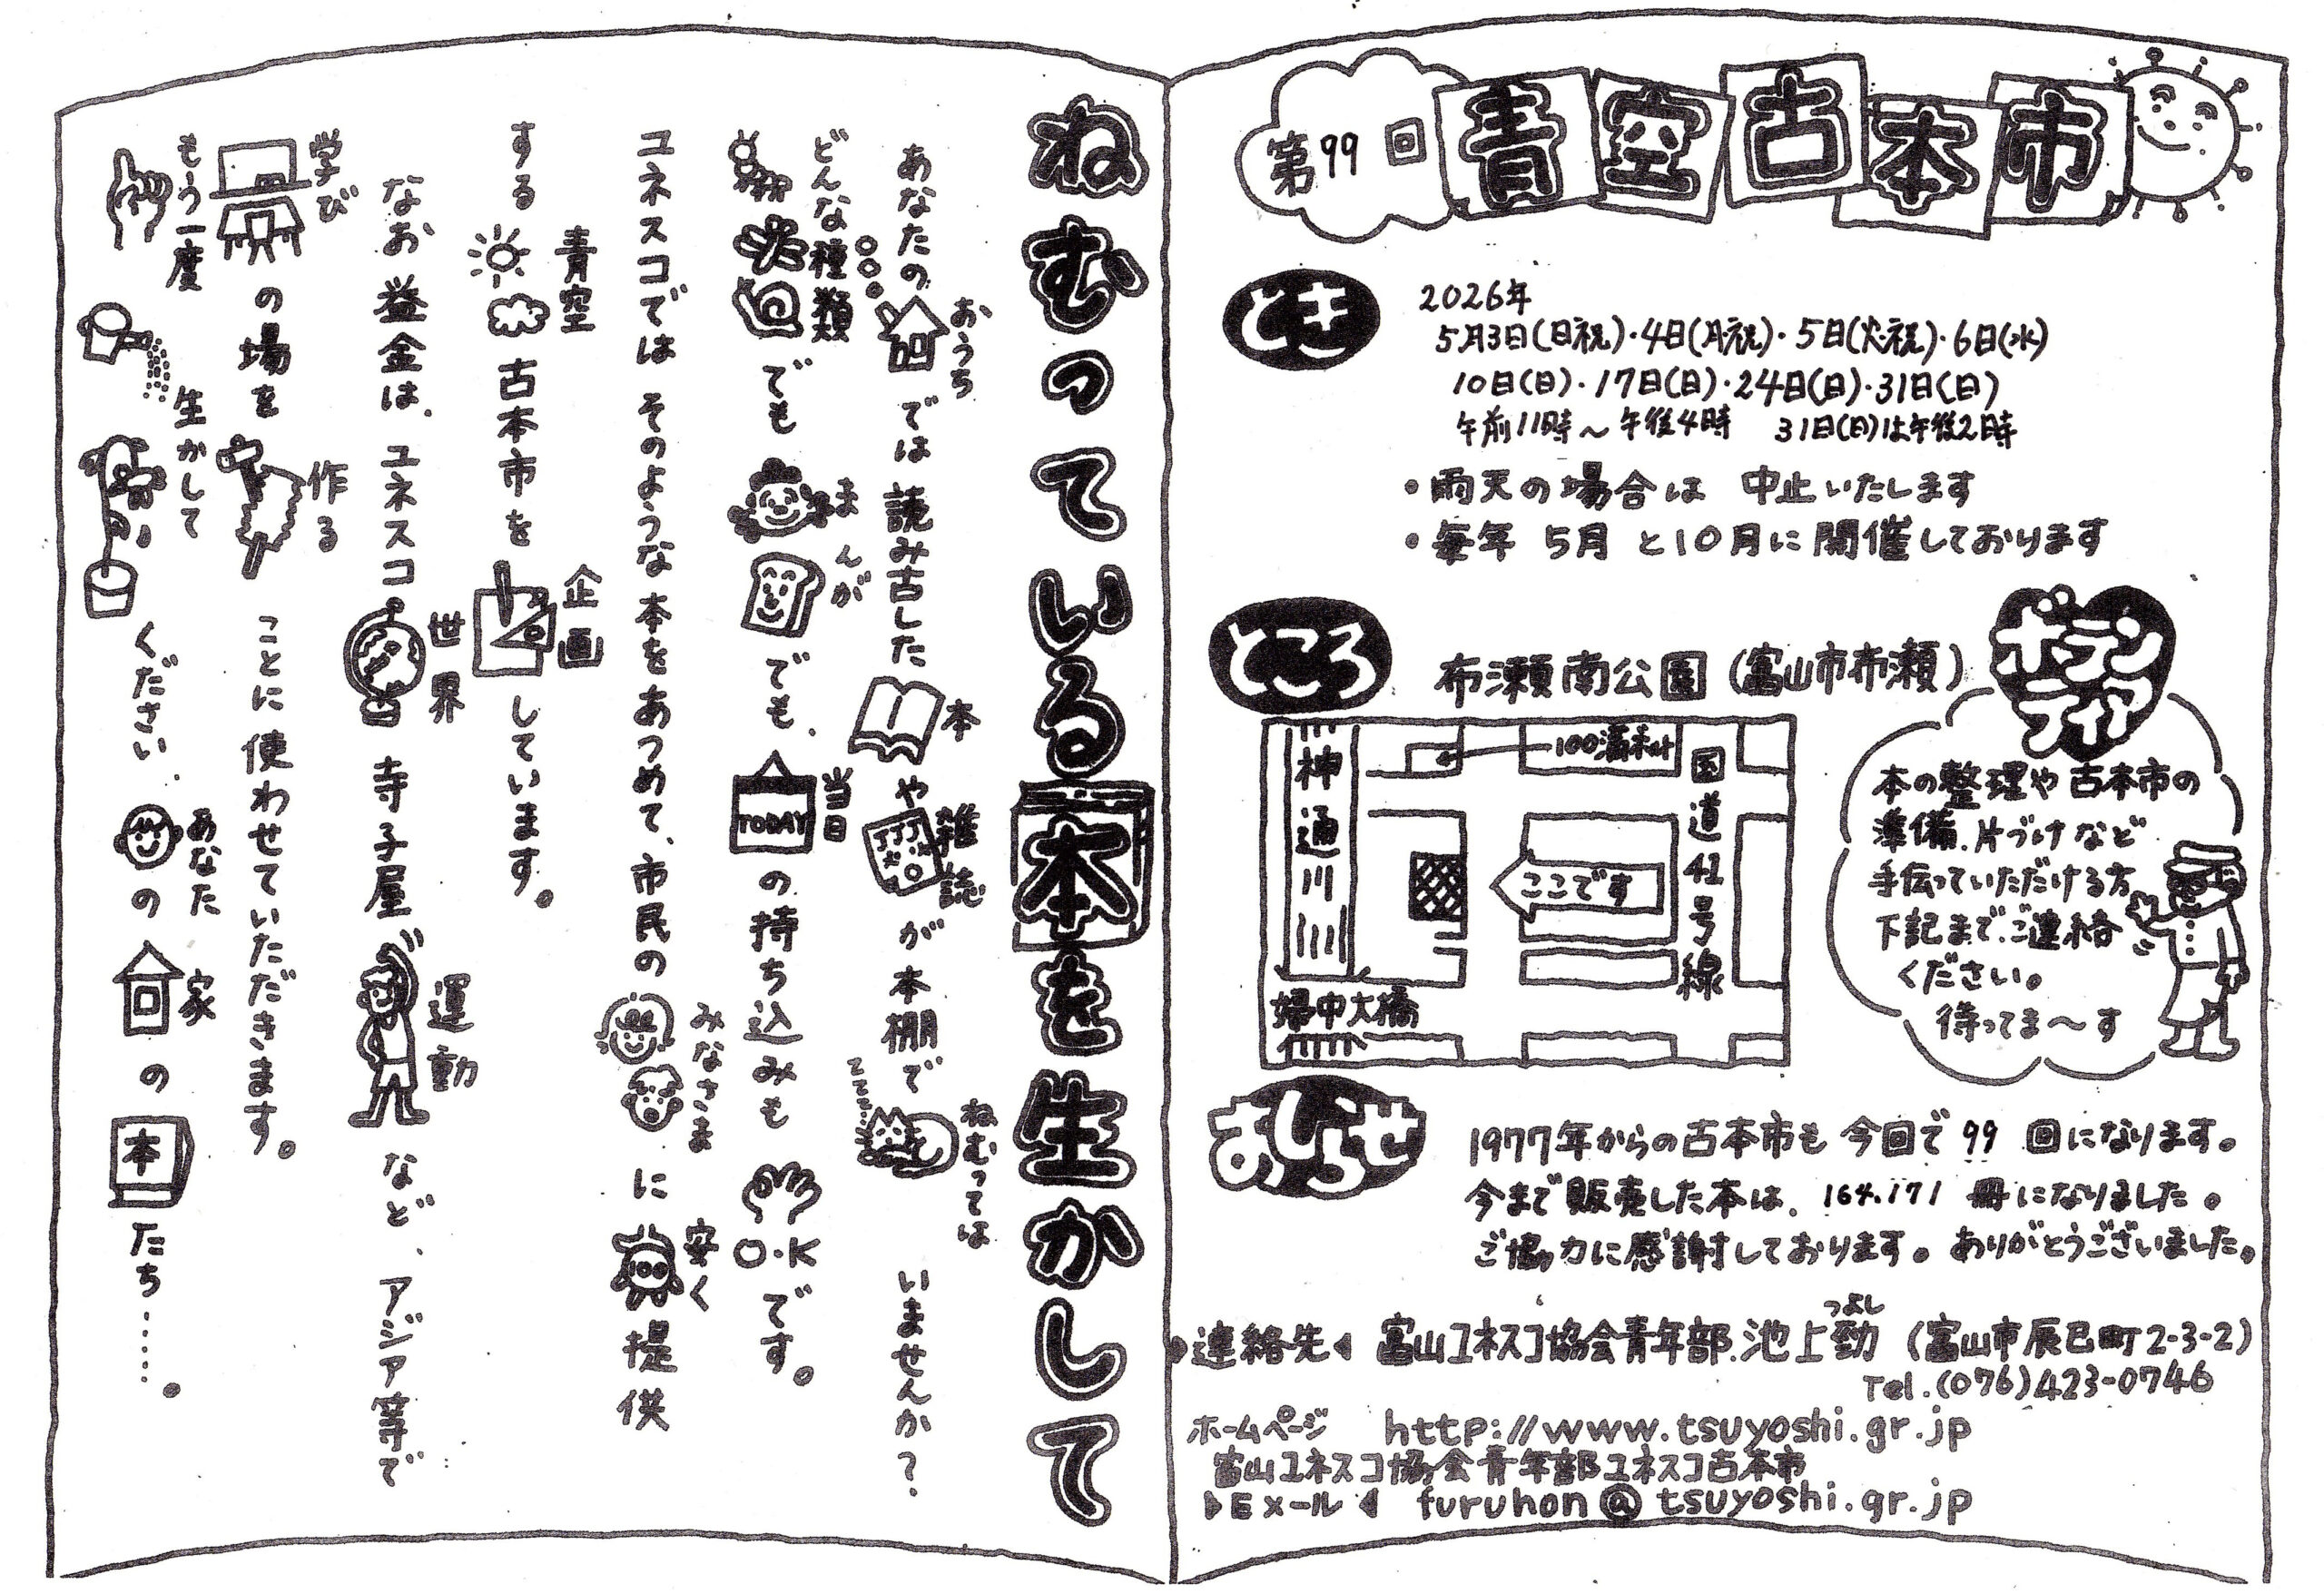 第99回 青空古本市
とき
2026年
5月3日(日祝)・4日(月祝)・5日(火・祝)・6日(水)
10日(日)・17日(日)・24日(日)・31日(日)
午前11時～午後4時 31日(日)は午後2時
・雨天の場合は 中止いたします
・毎年 5月 と10月に開催しております
ところ
布瀬南公園(富山市布瀬)
神通川
100満ボルト
国道41号線
ここです
婦中大橋
ボランティア
本の整理や古本市の
準備、片づけなど
手伝っていただける方
下記まで、ご連絡
ください。
待ってま～す
おしらせ
1977年からの古本市も 今回で 99 回になります。
今まで販売した本は、164,171 冊になりました。
ご協力に感謝しております。ありがとうございました。
連絡先 富山ユネスコ協会青年部、池上勁(富山市辰巳町2-3-2)
つよし
Tel.(076)423-0746
ホームページ http://www.tsuyoshi.gr.jp
富山ユネスコ協会青年部ユネスコ古本市
Eメール furuhon@tsuyoshi.gr.jp
ねむっている本を生かして
あなたの おうち では 読み古した 本 や 雑誌 が 本棚で ねむっては いませんか?
どんな種類 でも まんが でも、当日 TODAY の持ち込みも O.K です。
ユネスコでは そのような本をあつめて、市民の みなさま に 安く 提供
する 青空 古本市を 企画 しています。
なお 益金は、ユネスコ 世界 寺子屋 運動 など、アジア等で
学び の場を 作る ことに 使わせていただきます。
もう一度 生かして ください、あなた の 家 の 本 たち……。